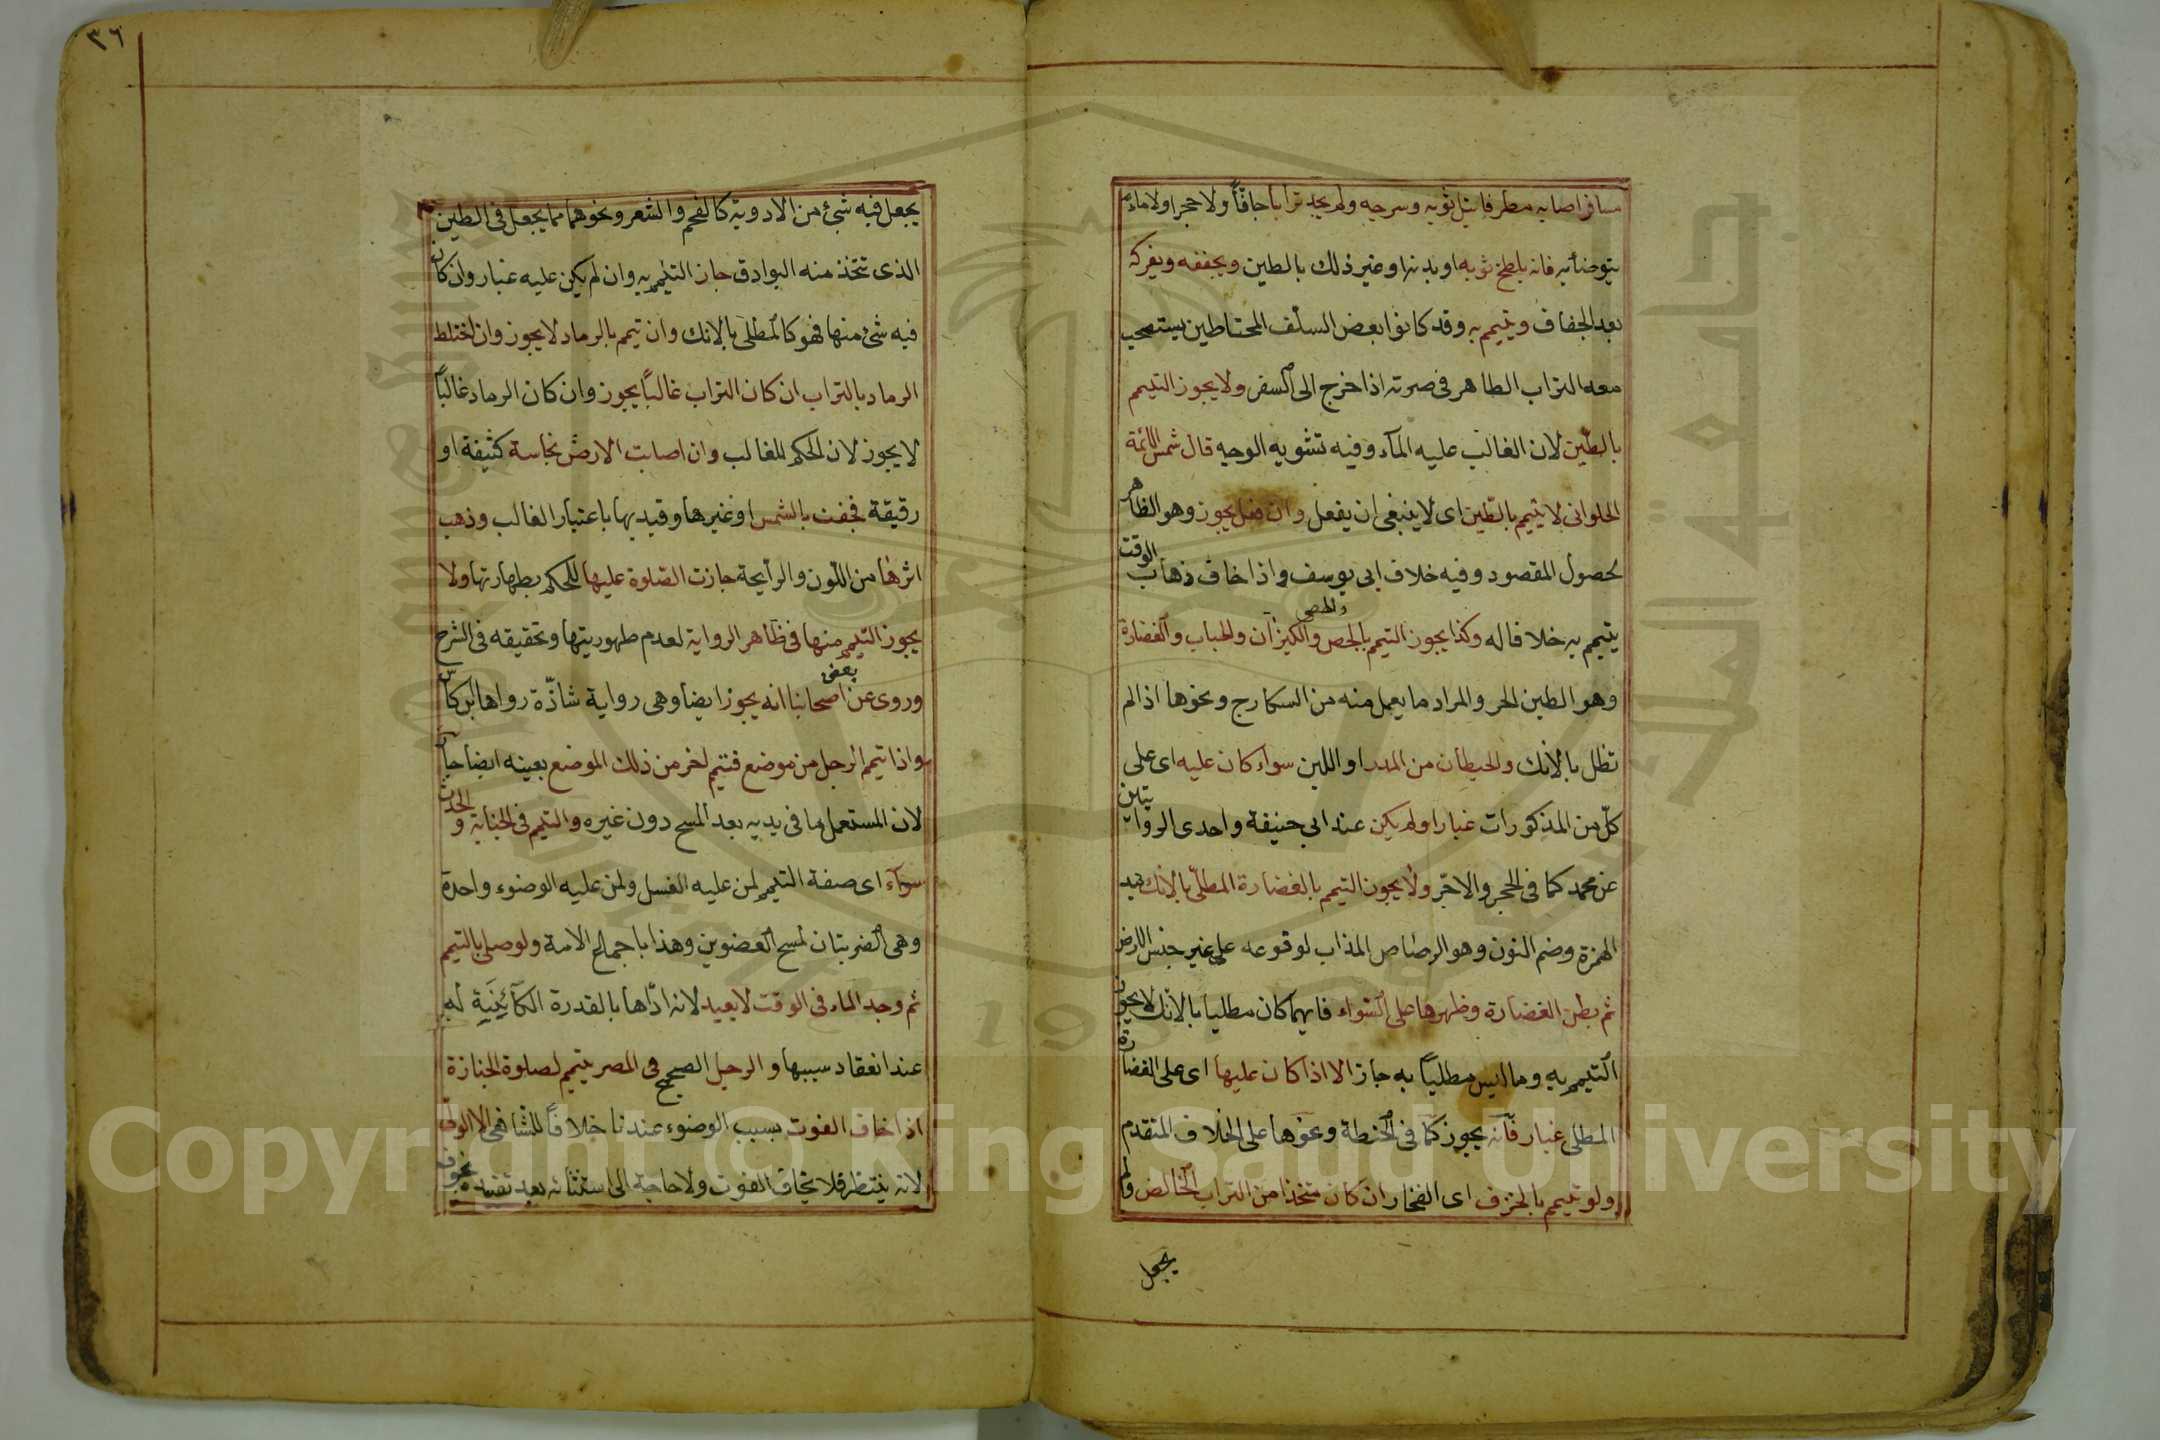 مسافر اصابه مطر فابتل ثوبه وسرجه ولم يجد ترابا جافّاً ولا حجرا ولا ماء
يتوضأ به فانه يلطخ ثوبه او بدنه او غير ذلك بالطين ويجففه ويفركه
بعد الجفاف ويتيمم به وقد كانوا بعض السلف المحتاطين يستصحب
معه التراب الطاهر في صرته اذا خرج الى السفر ولا يجوز التيمم
بالطين لان الغالب عليه الماء وفيه تشويه الوجه قال شمس الائمة
الحلواني لا يتيمم بالطين اى لا ينبغى ان يفعل وان فعل يجوز وهو الظاهر
لحصول المقصود وفيه خلاف ابى يوسف واذا خاف ذهاب الوقت
يتيمم به خلافا له وكذا يجوز التيمم بالجص والكيزان والحباب والغضارة
والحصى
وهو الطين الحر والمراد ما يعمل منه من السكارج ونحوها اذا لم
تطل بالآنك والحيطان من المدر او اللبن سواء كان عليه اى على
كلّ من المذكورات غبار اولم يكن عند ابى حنيفة واحدى الروايتين
عن محمد كما فى الحجر والاجر ولا يجوز التيمم بالغضارة المطلىّ بالآنك بمد
الهمزة وضم النون وهو الرصاص المذاب لوقوعه على غير جنس الارض
ثم بطن الغضارة وظهرها على السواء فايهما كان مطليا بالآنك لا يجوز
التيمم به وما ليس مطلياً به جاز الا اذا كان عليها اى على الغضارة
المطلى غبار فانه يجوز كما فى الحنطة ونحوها على الخلاف المتقدم
ولو تيمم بالخزف اى الفخار ان كان متخذا من التراب الخالص ولم
يجعل
٣٦
يجعل فيه شئ من الادوية كالفحم والشعر ونحوهما مما يجعل فى الطين
الذى تتخذ منه البوادق جاز التيمم به وان لم يكن عليه غبار وان كان
فيه شئ منها فهو كالمطلى بالآنك وان تيمم بالرماد لا يجوز وان اختلط
الرماد بالتراب ان كان التراب غالباً يجوز وان كان الرماد غالباً
لا يجوز لان الحكم للغالب وان اصابت الارض نجاسة كثيفة او
رقيقة فجفت بالشمس او غيرها وقيد بها باعتبار الغالب وذهب
اثرها من اللون والرايحة جازت الصلوة عليها للحكم بطهارتها ولا
يجوز التيمم منها فى ظاهر الرواية لعدم طهوريتها وتحقيقه فى الشرح
وروى عن بعض اصحابنا انه يجوز ايضا وهى رواية شاذّة رواها ابن كاس
واذا تيمم الرجل من موضع فتيمم اخر من ذلك الموضع بعينه ايضا جاز
لان المستعمل ما فى يديه بعد المسح دون غيره والتيمم فى الجنابة والحدث
سواء اى صفة التيمم لمن عليه الغسل ولمن عليه الوضوء واحدة
وهى الضربتان لمسح العضوين وهذا باجماع الامة ولو صلى بالتيمم
ثم وجد الماء فى الوقت لا يعيد لانه ادّاها بالقدرة الكآئِنَية له
عند انعقاد سببها والرجل الصحيح فى المصر يتيمم لصلوة الجنازة
اذا خاف الفوت بسبب الوضوء عندنا خلافاً للشافعى الا الولى
لانه ينتظر فلا يخاف الفوت ولا حاجة الى استثنائه بعد تقييده بخوف
جامعة الملك سعود
King Saud University
195
Copyright © King Saud University